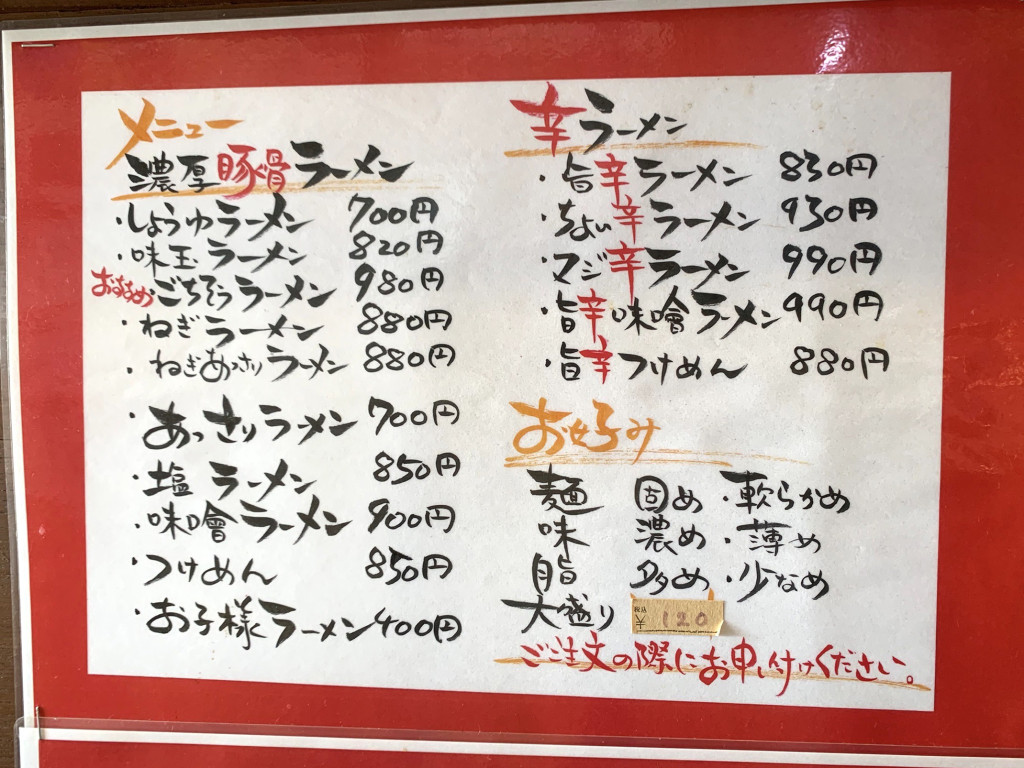 メニュー
濃厚豚骨ラーメン
・しょうゆラーメン 700円
・味玉ラーメン 820円
おすすめ・ごちそうラーメン 980円
・ねぎラーメン 880円
・ねぎあっさりラーメン 880円
・あっさりラーメン 700円
・塩ラーメン 850円
・味噌ラーメン 900円
・つけめん 850円
・お子様ラーメン 400円
辛ラーメン
・旨辛ラーメン 830円
・ちょい辛ラーメン 930円
・マジ辛ラーメン 990円
・旨辛味噌ラーメン 990円
・旨辛つけめん 880円
お好み
麺 固め・軟らかめ
味 濃め・薄め
脂 多め・少なめ
大盛り 税込 ¥120
ご注文の際にお申し付けください。